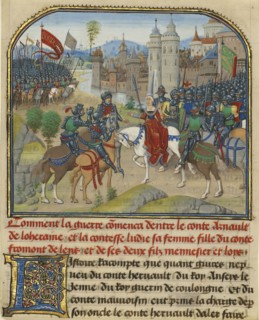 Comment la guerre cōmenca dentre le conte Arnault
de lohetaine et la contesse ludie sa femme fille du conte
fromont de lens et de ses deux filz mennesier et loys
Istoire racompte que quant guiret nep
ueu du conte hernault du Roy Anseys le
Jenne du Roy guerin de coulongne et du
conte mauuoisin eut prins la charge dep
son oncle le conte hernault daler faire